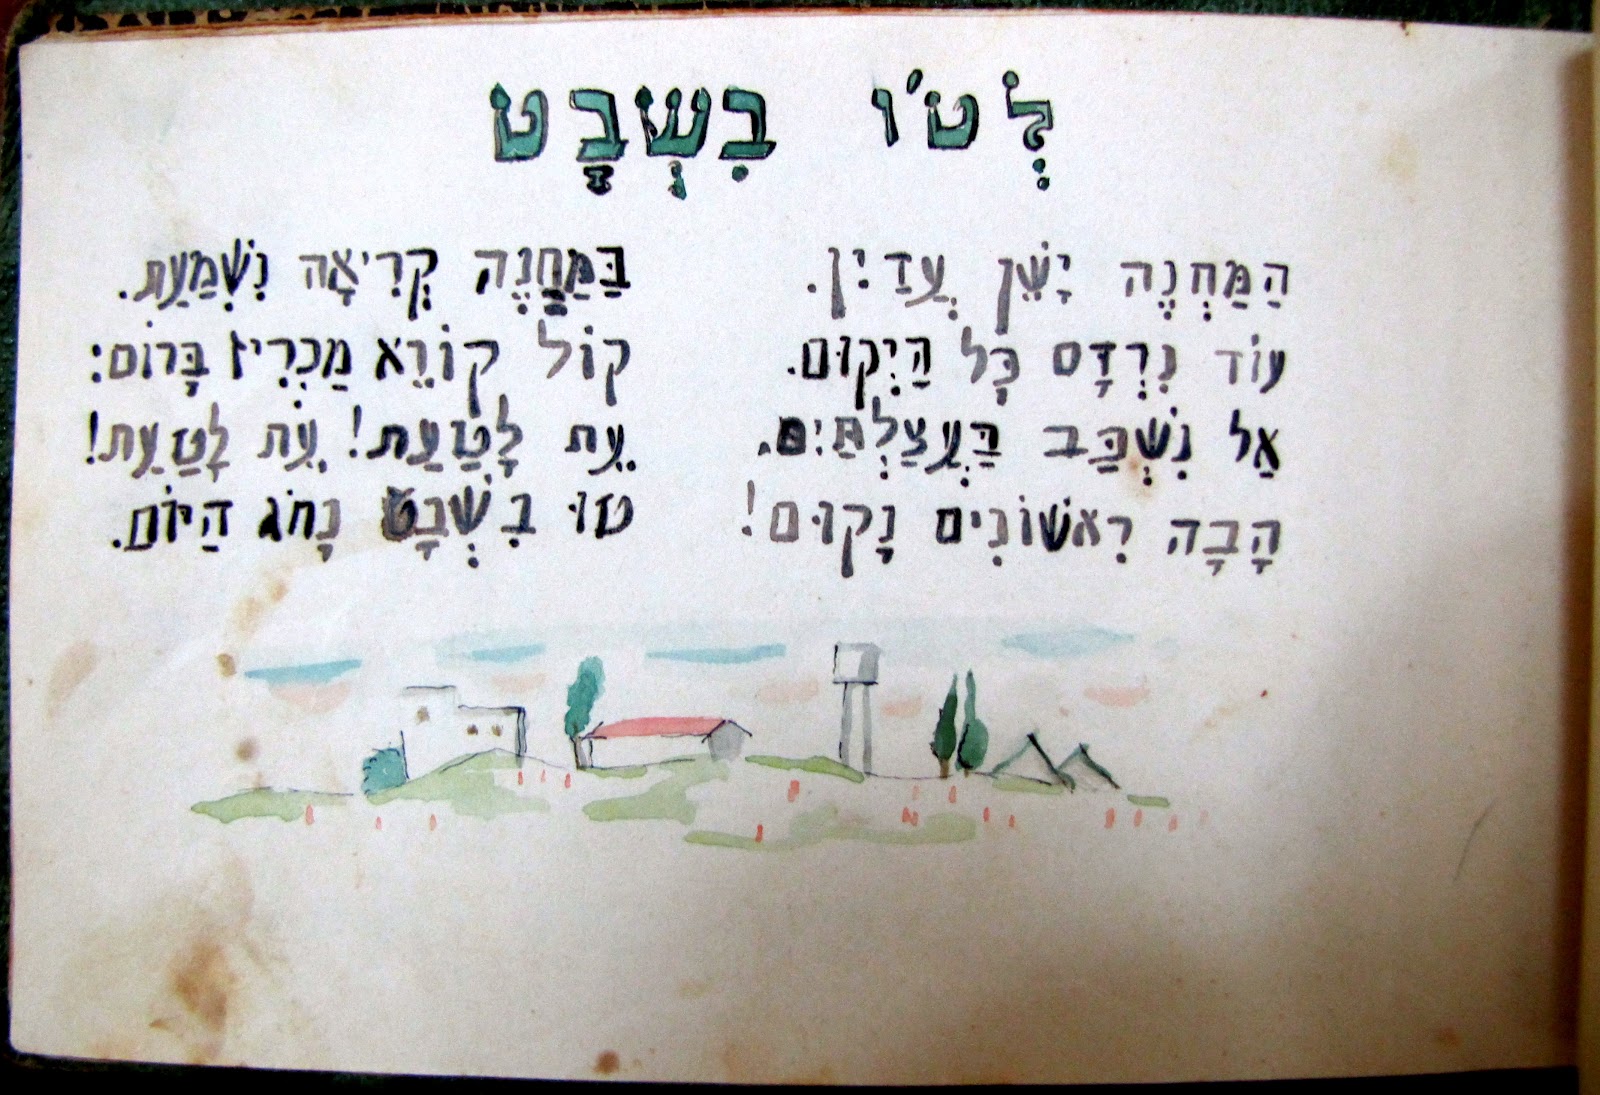 לְט'ו בִּשְׁבָט
הַמַּחְנֶה יָשֵׁן עֲדַיִן.
עוֹד נִרְדָּם כָּל הַיְקוּם.
אַל נִשְׁכַּב בַּעֲצַלְתַּיִם.
הָבָה רִאשׁוֹנִים נָקוּם!
בַּמַּחֲנֶה קְרִיאָה נִשְׁמַעַת.
קוֹל קוֹרֵא מַכְרִיז בָּרוֹם:
עֵת לָטַעַת! עֵת לָטַעַת!
טוּ בִּשְׁבָט נָחֹג הַיּוֹם.